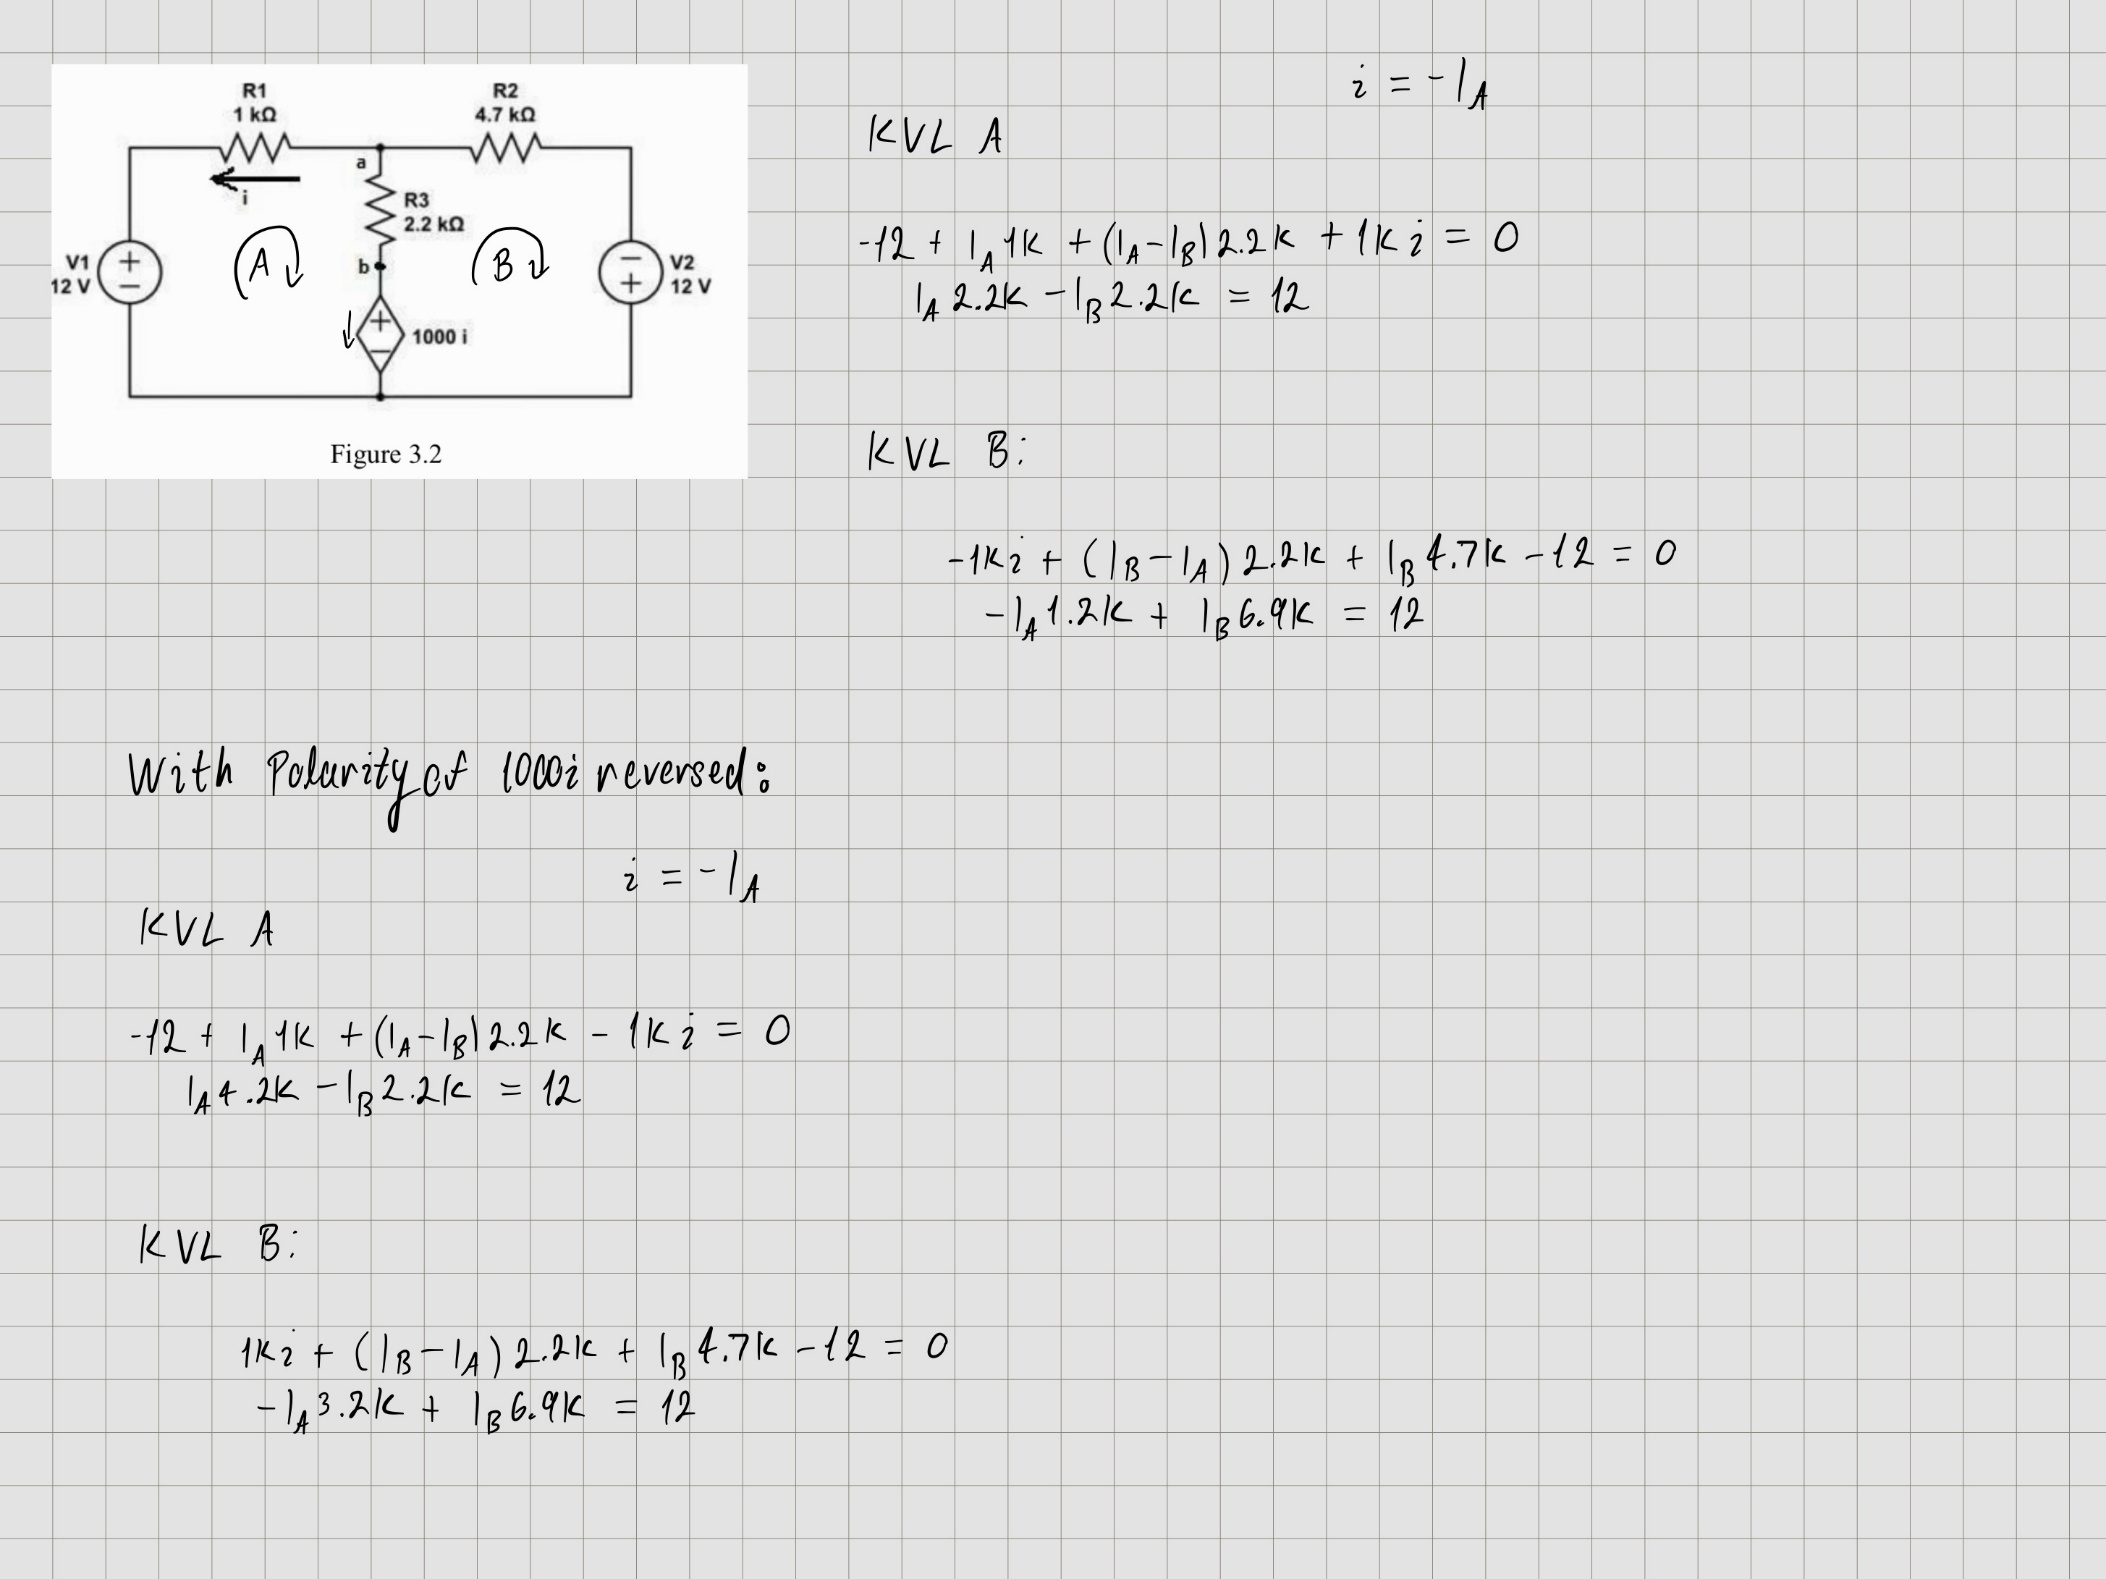 R1
1 kΩ
R2
4.7 kΩ
a
i
R3
2.2 kΩ
V1
12 V
A
b
B
V2
12 V
1000 i
Figure 3.2
i = -I_A
KVL A
-12 + I_A 1K + (I_A - I_B) 2.2K + 1K i = 0
I_A 2.2K - I_B 2.2K = 12
KVL B:
-1K i + (I_B - I_A) 2.2K + I_B 4.7K - 12 = 0
-I_A 1.2K + I_B 6.9K = 12
With Polarity of 1000i reversed:
i = -I_A
KVL A
-12 + I_A 1K + (I_A - I_B) 2.2K - 1K i = 0
I_A 4.2K - I_B 2.2K = 12
KVL B:
1K i + (I_B - I_A) 2.2K + I_B 4.7K - 12 = 0
-I_A 3.2K + I_B 6.9K = 12